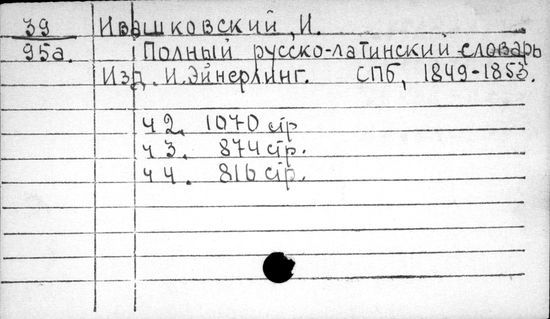 39 Ивашковский, И.
95а. Полный русско-латинский словарь
Изд. И. Эйнерлинг. СПб, 1849-1853.
ч 2. 1070 стр
ч 3. 874 стр.
ч 4. 816 стр.